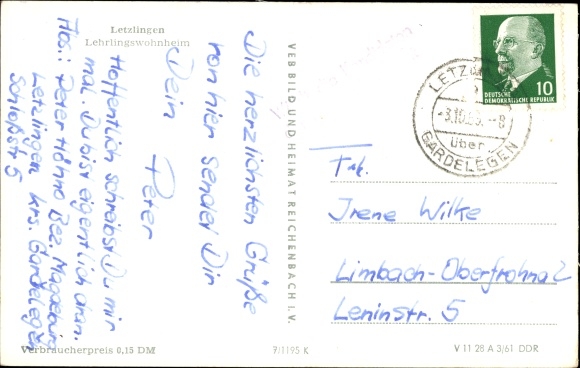 Letzlingen
Lehrlingswohnheim
Die herzlichsten Grüße
von hier sendet Dir
Dein Peter
Hoffentlich schreibst Du mir
mal. Du bist eigentlich dran.
Abs.: Peter Höhne Bez. Magdeburg
Letzlingen Krs. Gardelegen
Schloßstr. 5
Verbraucherpreis 0,15 DM
VEB BILD UND HEIMAT REICHENBACH I. V.
7/1195 K
DEUTSCHE
DEMOKRATISCHE REPUBLIK
10
über
GARDELEGEN
Irene Wilke
Limbach-Oberfrohna 2
Leninstr. 5
V 11 28 A 3/61 DDR